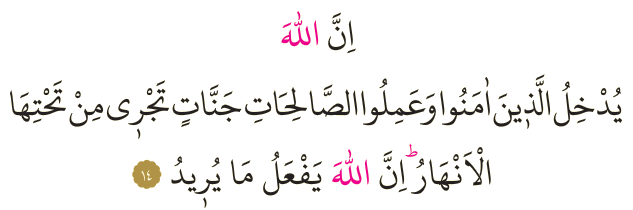 اِنَّ اللّٰهَ
يُدْخِلُ الَّذ۪ينَ اٰمَنُوا وَعَمِلُوا الصَّالِحَاتِ جَنَّاتٍ تَجْر۪ي مِنْ تَحْتِهَا
الْاَنْهَارُۜ اِنَّ اللّٰهَ يَفْعَلُ مَا يُر۪يدُ ﴿١٤﴾